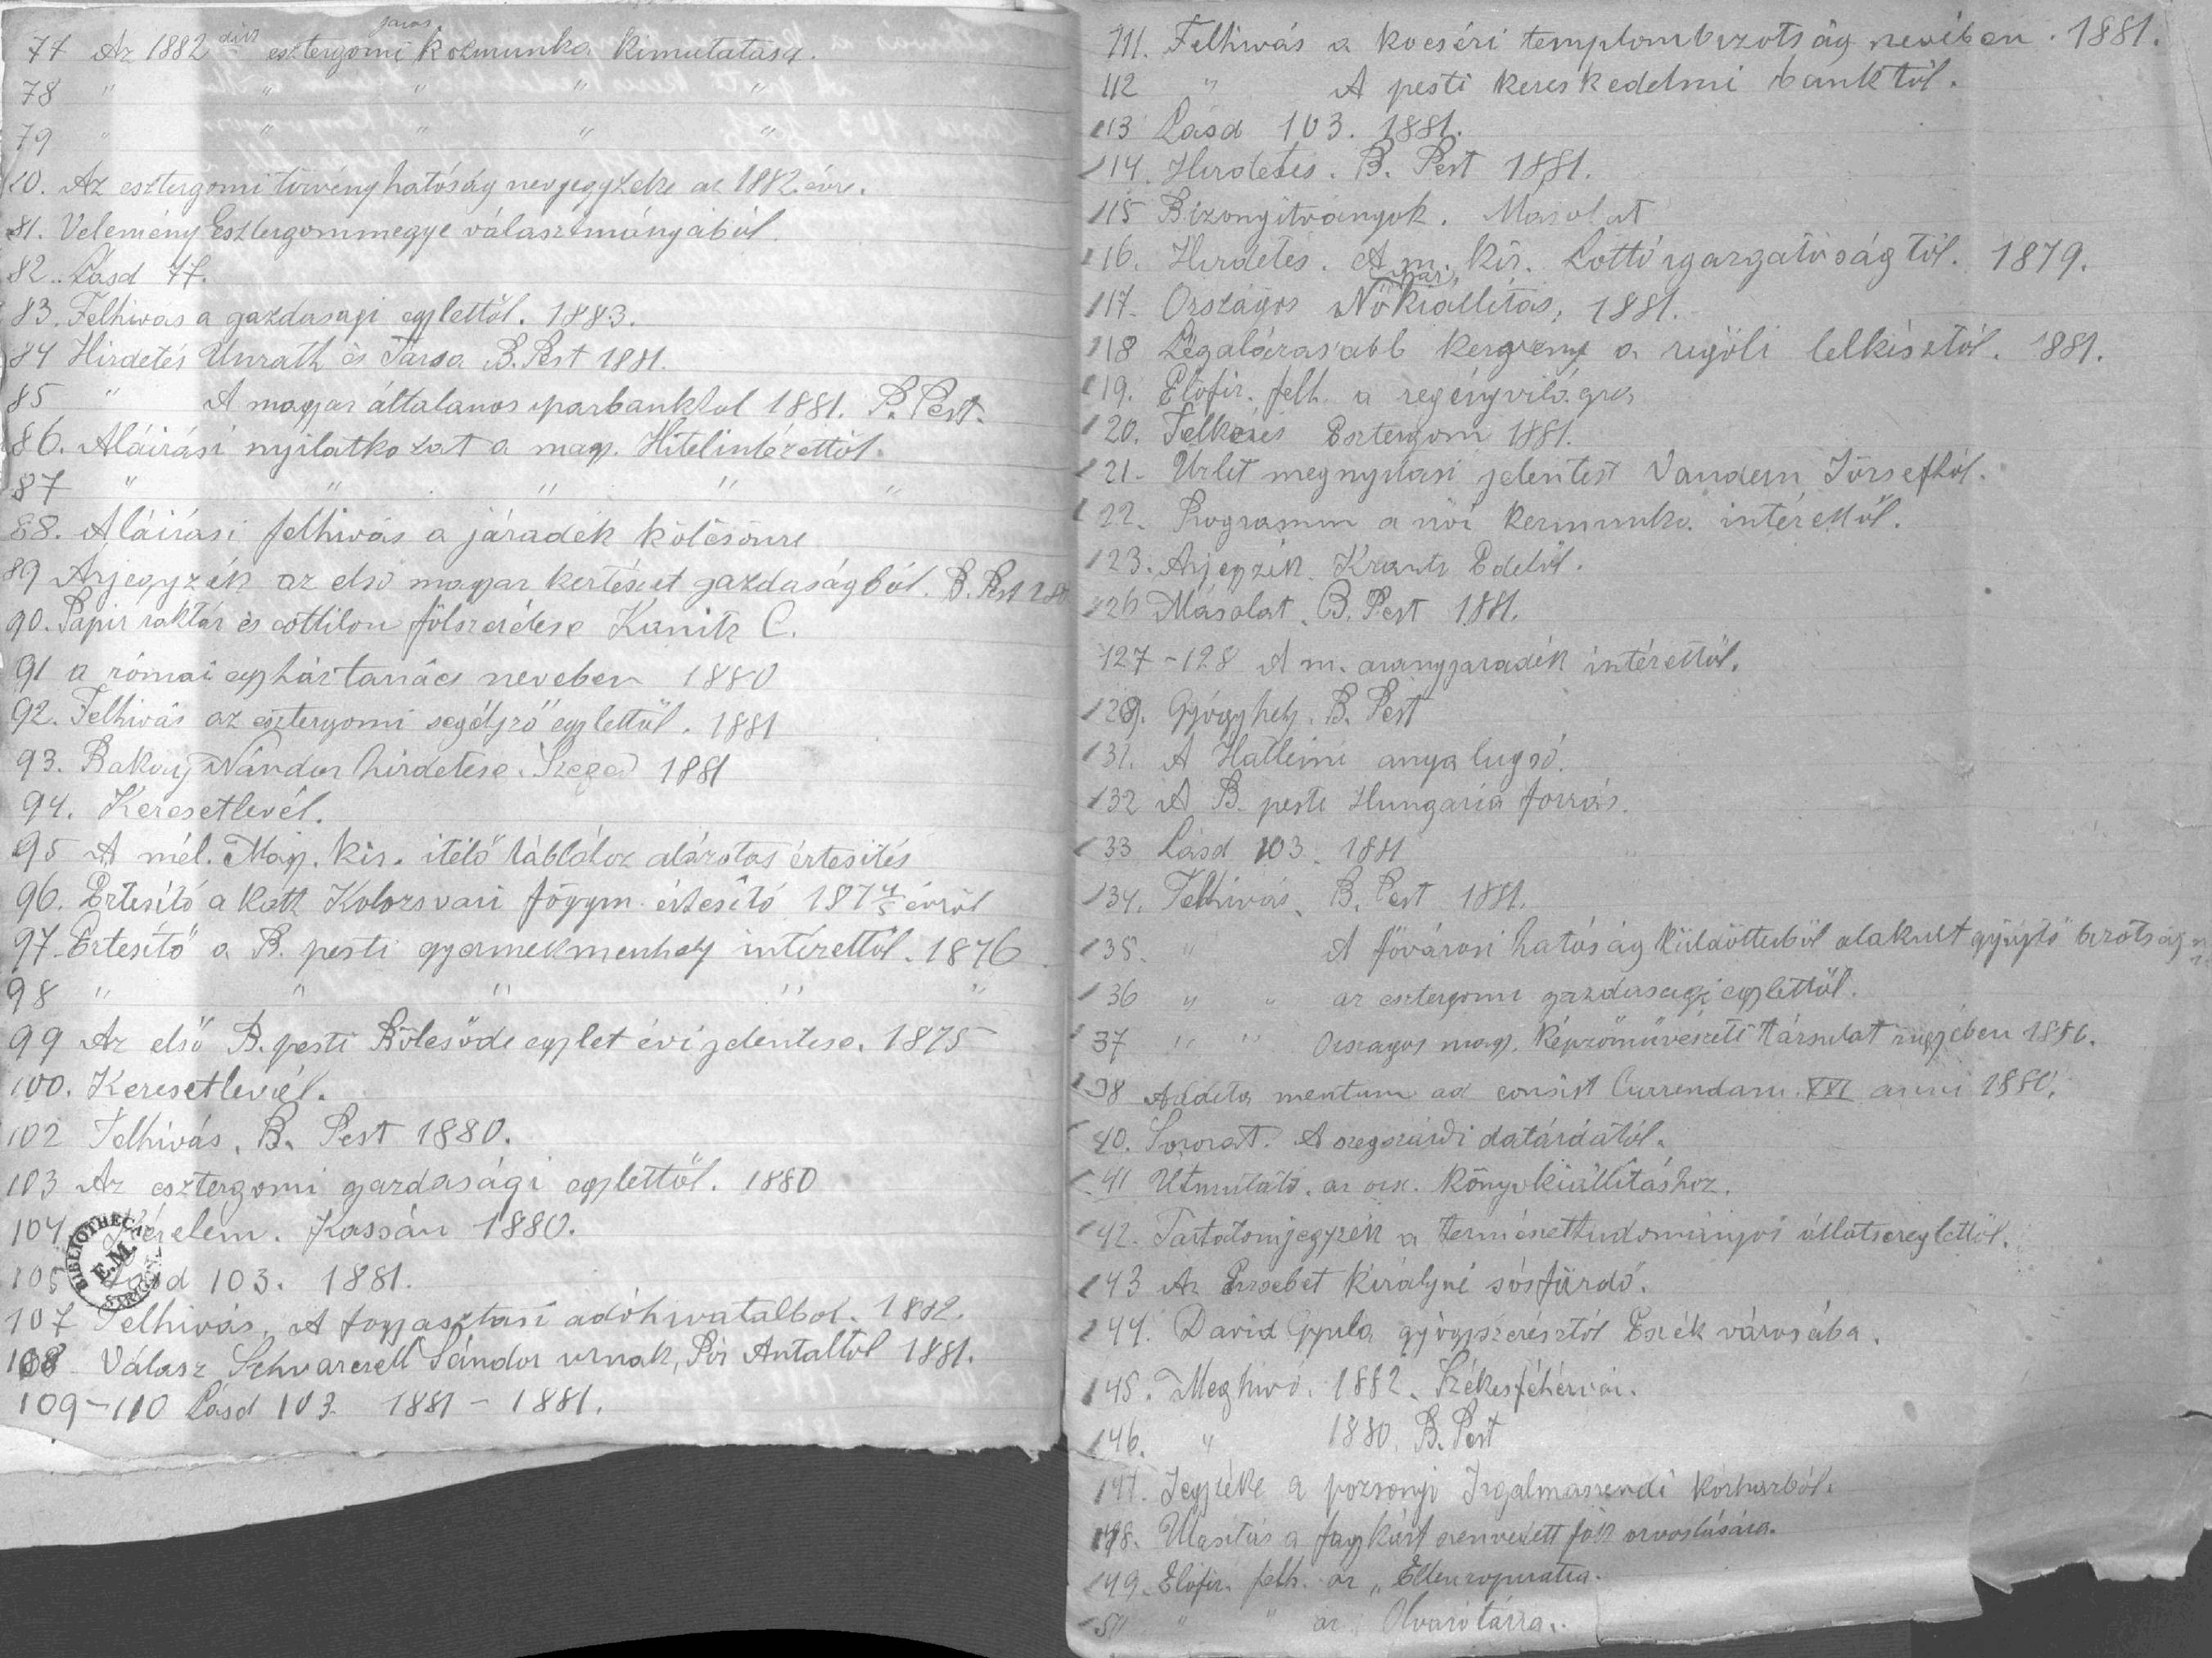 77 Az 1882 dik esztergomi járás közmunka kimutatása.
78 " " " " "
79 " " " " "
80. Az esztergomi törvényhatóság nevjegyzeke az 1882. évre.
81. Velemény Esztergommegye választmányából.
82. Lásd 77.
83. Felhivás a gazdasagi egylettől. 1883.
84 Hirdetés Unrath és Társa B. Pest 1881.
85 " A magyar általanos iparbanktol 1881. B. Pest.
86. Aláirási nyilatkozat a magy. Hitelintézettöl.
87 " " " " "
88. Aláirási felhivás a járadék kölcsönre
89 Árjegyzék az első magyar kertészet gazdaságból. B. Pest
90. Papir raktár és cottilon fölszerelése Kanitz C.
91 a római egyháztanács neveben 1880
92. Felhivás az esztergomi segélyző egylettől. 1881
93. Bakay Nándor hirdetése. Szeged 1881
94. Keresetlevél.
95 A mél. Magy. kir. itélő táblához alázatos értesités
96. Értesítő a kath Kolozsvari főgym. értesítő 187 4/5 évről
97. Értesítő a B. pesti gyermekmenhely intézettől. 1876
98 " " " " "
99 Az első B. pesti Bölcsőde egylet évi jelentese. 1875
100. Keresetlevél.
102 Felhivás. B. Pest 1880.
103 Az esztergomi gazdasági egylettől. 1880
104. Kérelem. Kassán 1880.
BIBLIOTHECA E.M.
105 Lásd 103. 1881.
107 Felhivás. A fogyasztasi adóhivatalbol. 1882.
108 Válasz Sándor urnak, Pór Antaltol 1881.
109-110 Lásd 103. 1881 - 1881.
111. Felhivás a kocséri templombizotság nevében. 1881.
112 " A pesti kereskedelmi banktól.
113 Lásd 103. 1881.
114. Hirdetés. B. Pest 1881.
115 Bizonyitványok. Másolat
116. Hirdetés. A m. kir. Lottóigazgatóságtól. 1879.
117. Országos Nőipar kiállitás, 1881.
118 Legalázasabb a regöli lelkésztől. 1881.
119. Előfiz. felh. a regényvilágra
120. Felkérés Esztergom 1881.
121. Üzlet megnyitasi jelentest Józseftől.
122. Programm a női kézimunka intézettől.
123. Árjegyzék Edétől.
126 Másolat. B. Pest 1881.
127-128 A m. aranyjaradék intézettől.
129. Gyógyhely. B. Pest
131. A Halleini anyalugsó.
132 A B. pesti Hungaria forrás.
133 Lásd 103. 1881
134. Felhivás. B. Pest 1881.
135. " A fővárosi hatóság küldötteiből alakult gyüjtő bizotság
136 " " az esztergomi gazdasagi egylettől.
137 " " Országos magy. képzőművészeti társulat ügyében 1886.
138 Additamentum ad consist Currendam XXI anni 1880.
140. Sorozat. A szegszárdi dalárdától.
141 Útmutató. az orsz. könyvkiállitáshoz.
142. Tartalomjegyzék a természettudományos állatsereglettől.
143 Az Erzsebet királyné sósfürdő.
144. David Gyula gyógyszerésztől Eszék városába.
145. Meghivó. 1882. Székesfehérvár.
146. " 1880. B. Pest
147. Jegyzéke a pozsonyi Irgalmasrendi kórházból.
148. Utasitás a fagykárt szenvedett fák orvoslására.
149. Előfiz. felh. az
150 " " az Olvasótárra.